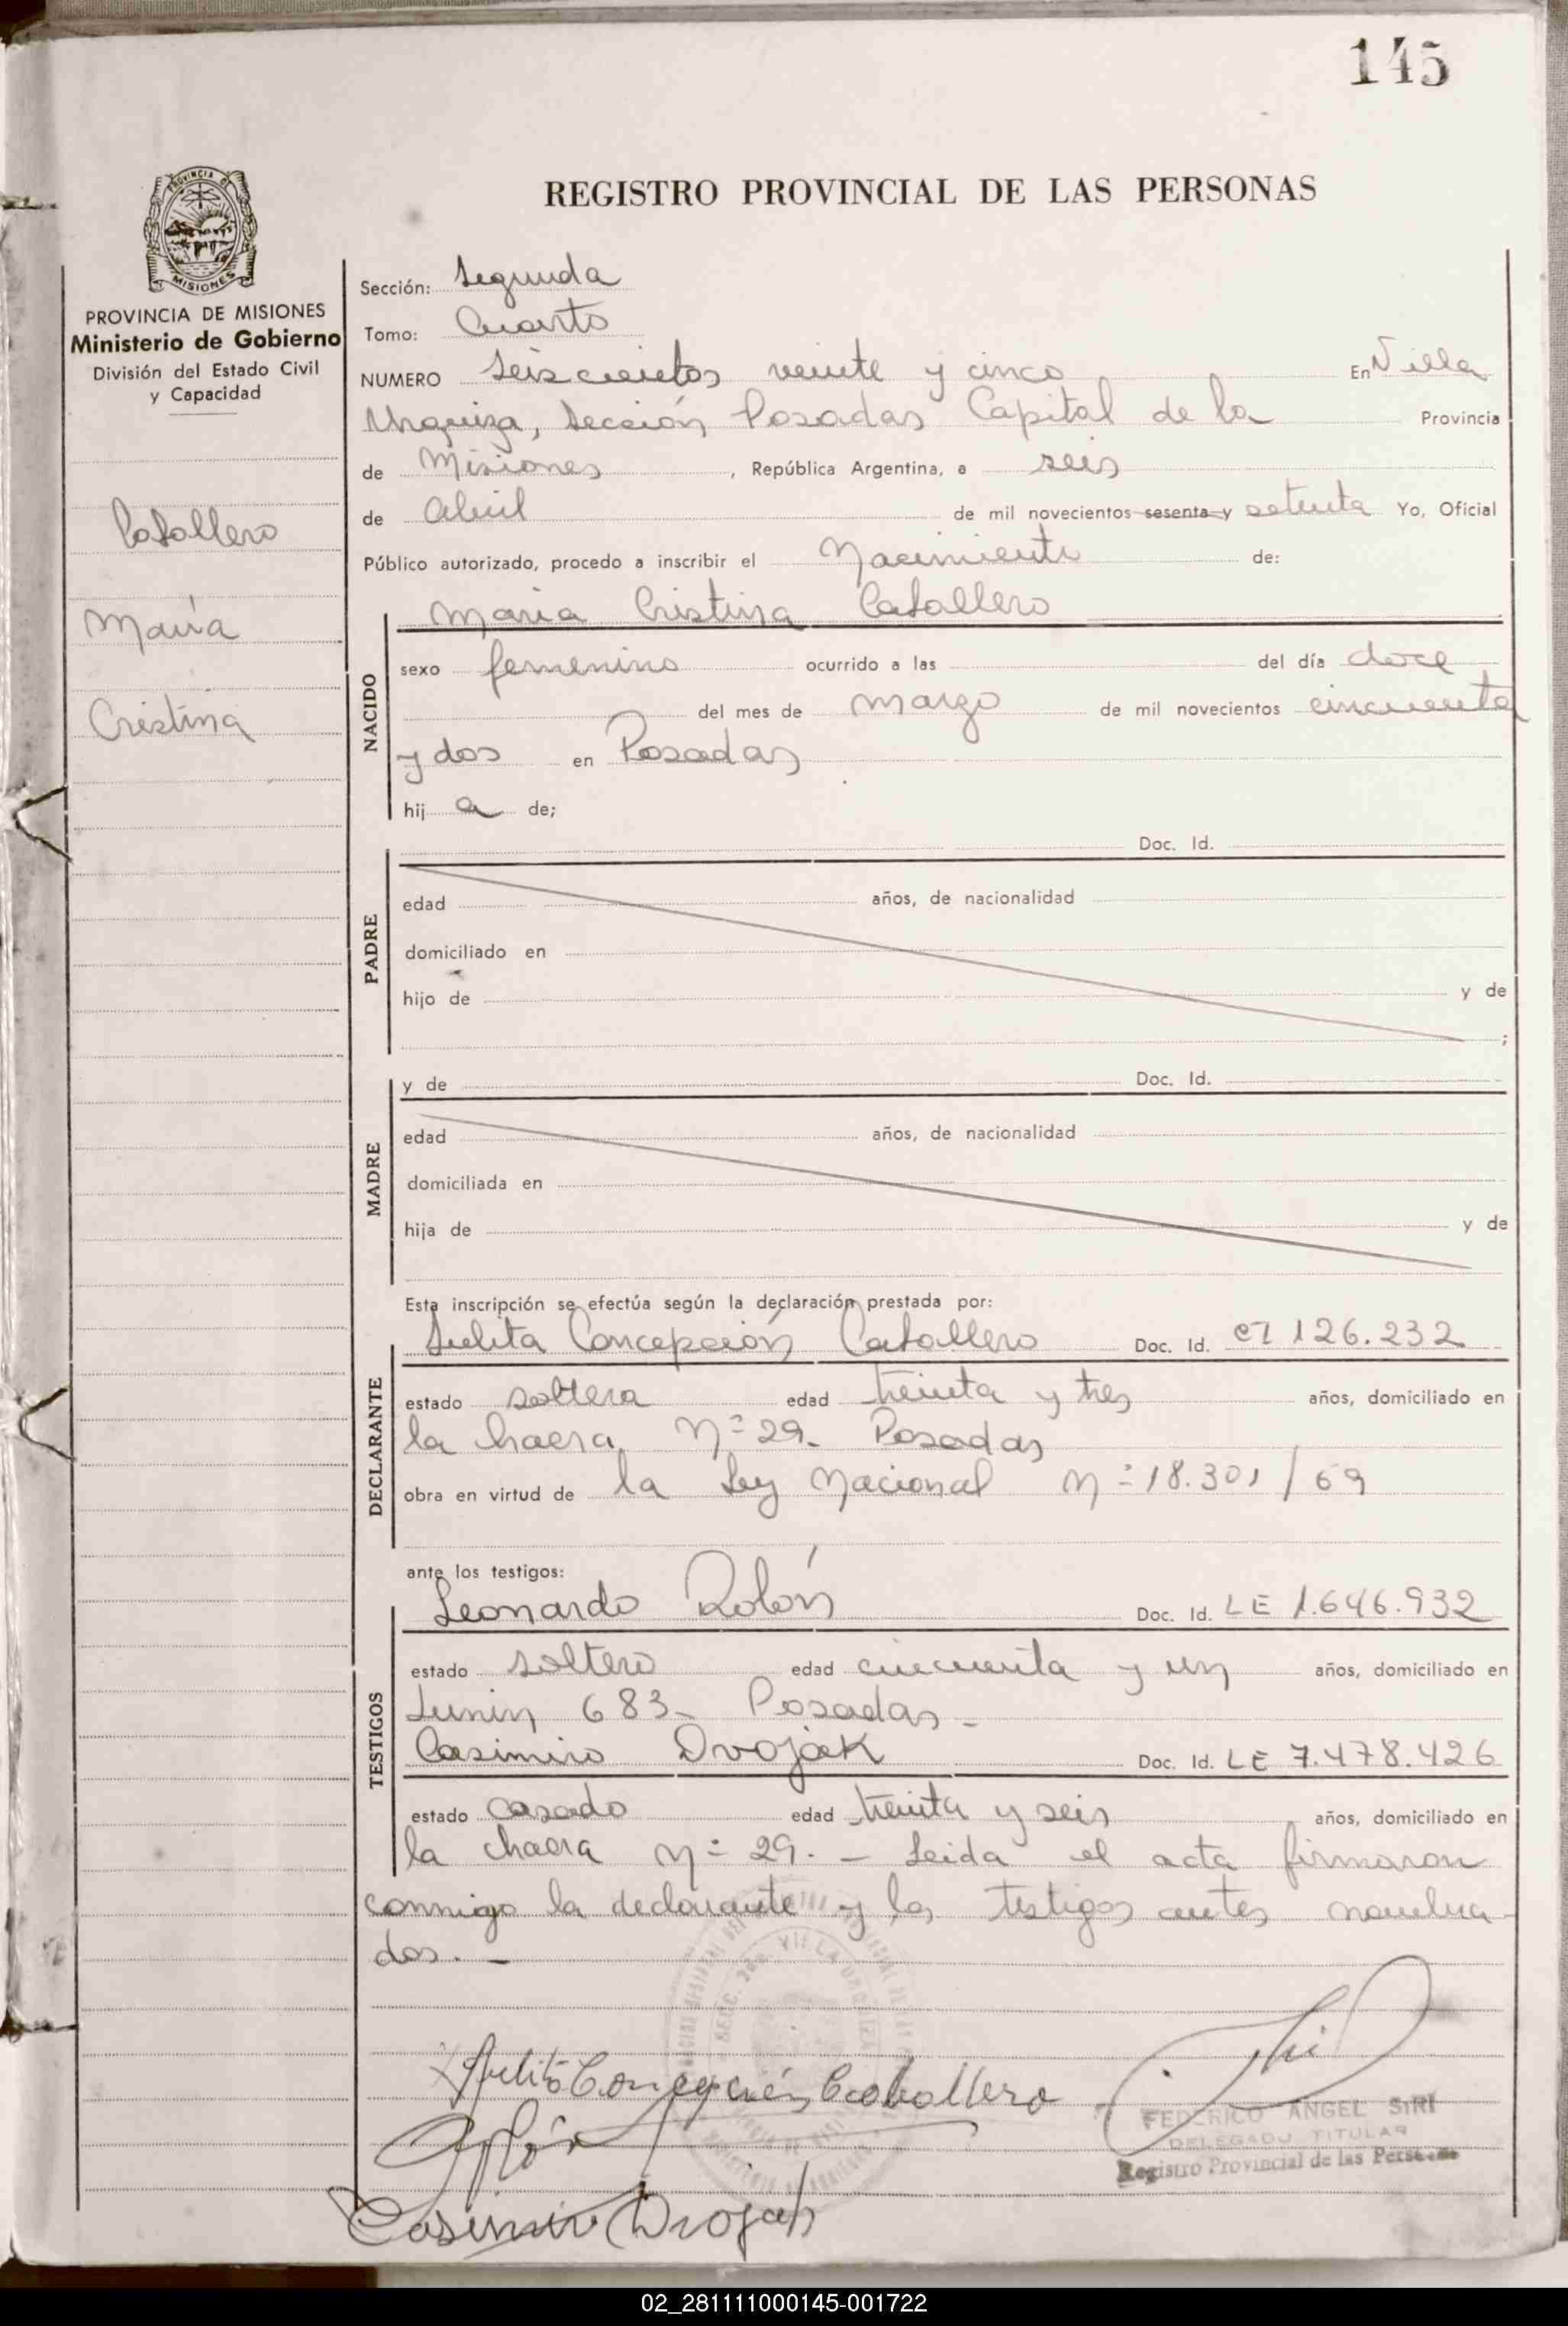 145
PROVINCIA DE
MISIONES
PROVINCIA DE MISIONES
Ministerio de Gobierno
División del Estado Civil
y Capacidad
Caballero
María
Cristina
REGISTRO PROVINCIAL DE LAS PERSONAS
Sección: Segunda
Tomo: Cuarto
NUMERO Seiscientos veinte y cinco En Villa
Urquiza, Sección Posadas Capital de la Provincia
de Misiones, República Argentina, a seis
de Abril de mil novecientos sesenta y setenta Yo, Oficial
Público autorizado, procedo a inscribir el Nacimiento de:
NACIDO
Maria Cristina Caballero
sexo femenino ocurrido a las del día doce
del mes de marzo de mil novecientos cincuenta
y dos en Posadas
hij a de;
PADRE
Doc. Id.
edad años, de nacionalidad
domiciliado en
hijo de y de
;
MADRE
y de Doc. Id.
edad años, de nacionalidad
domiciliada en
hija de y de
Esta inscripción se efectúa según la declaración prestada por:
DECLARANTE
Julita Concepción Caballero Doc. Id. CI 126.232
estado soltera edad treinta y tres años, domiciliado en
la chacra Nº 29- Posadas
obra en virtud de la Ley Nacional Nº 18.301/69
ante los testigos:
TESTIGOS
Leonardo Rolón Doc. Id. LE 1.646.932
estado soltero edad cincuenta y un años, domiciliado en
Junin 683- Posadas-
Casimiro Dvojak Doc. Id. LE 7.478.426
estado casado edad treinta y seis años, domiciliado en
la chacra Nº 29.- Leida el acta firmaron
conmigo la declarante y los testigos antes nombra-
dos.-
Julita Concepción Caballero
Casimiro Dvojak
FEDERICO ANGEL SIRI
DELEGADO TITULAR
Registro Provincial de las Personas
02_281111000145-001722